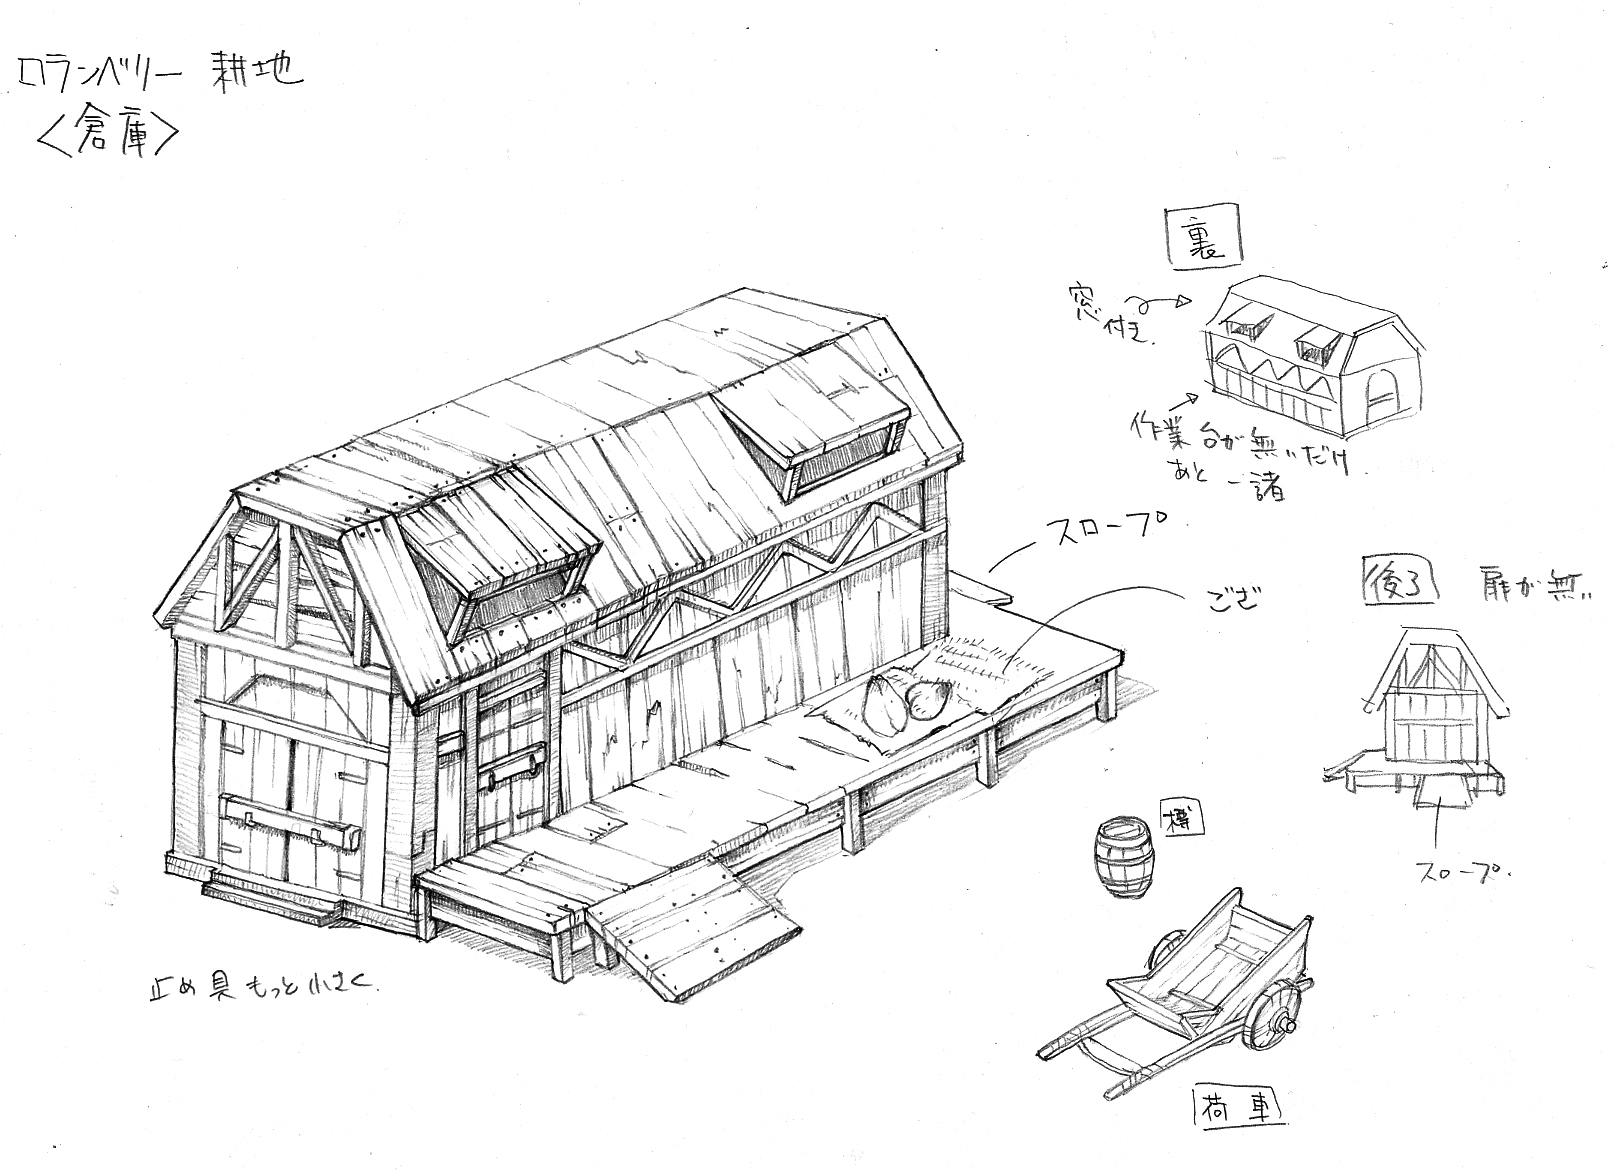 ロランベリー 耕地
<倉庫>
裏
窓
付き.
作業台が無いだけ.
あと 一諸
スロープ
ござ
後ろ 扉が無い
スロープ.
樽
荷車
止め具もっと小さく.